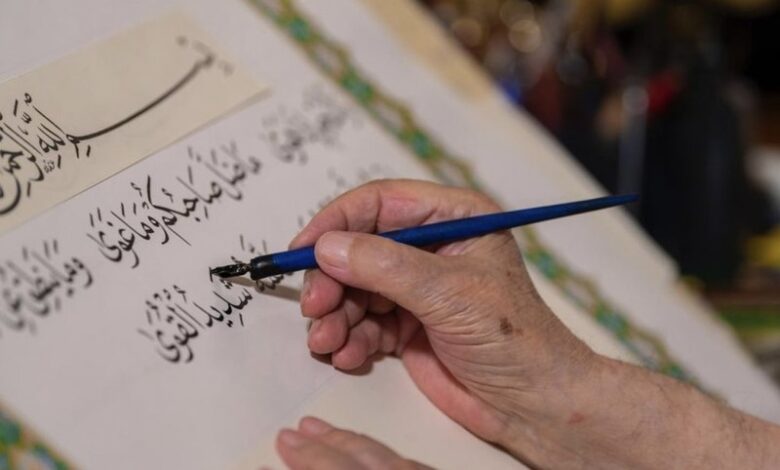 بِسْمِ اللّٰهِ الرَّحْمٰنِ
مَا ضَلَّ صَاحِبُكُمْ وَمَا غَوَىٰ وَمَا يَنْطِقُ عَنِ
شَدِيدُ الْقُوَىٰ